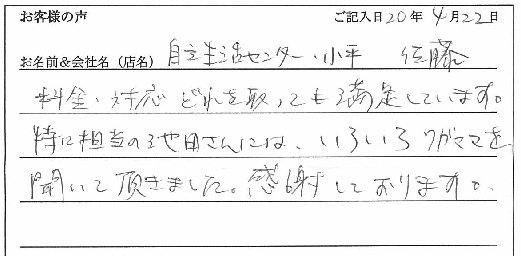 お客様の声 ご記入日20年4月22日
お名前&会社名(店名) 自立生活センター・小平 佐藤
料金、対応どれを取っても満足しています。
特に担当の池田さんには、いろいろワガママを
聞いて頂きました。感謝しております。